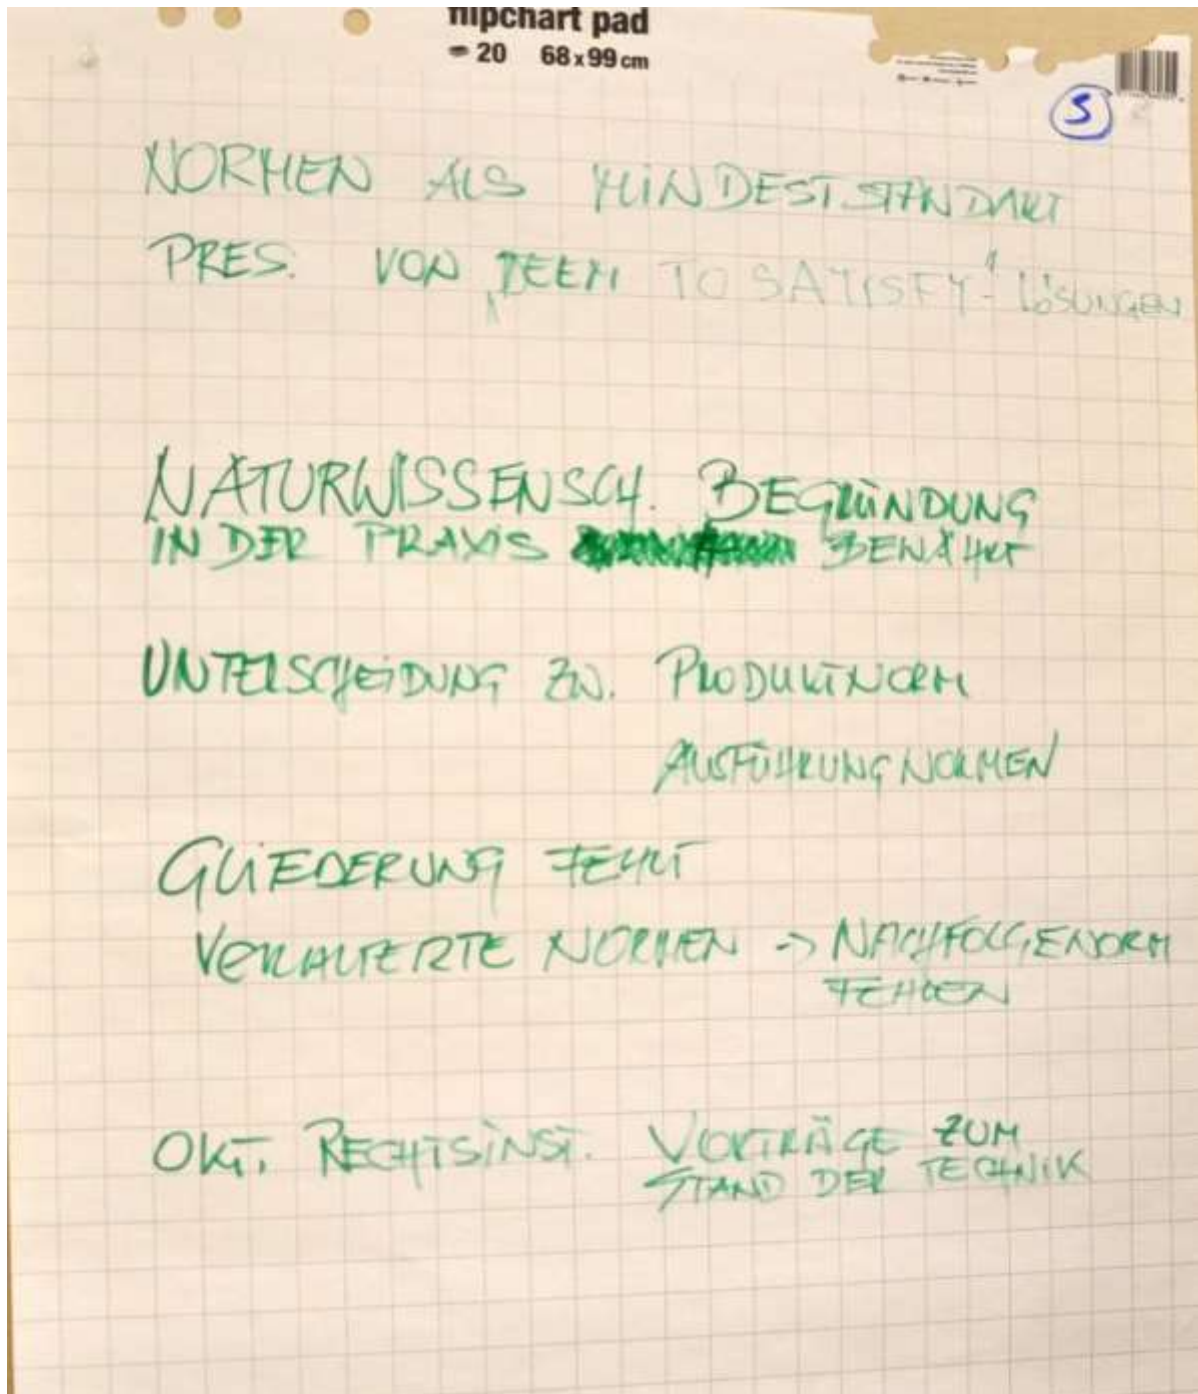 flipchart pad
20 68 x 99 cm
5
NORMEN ALS MINDESTSTANDART
PRES. VON "DEEM TO SATISFY"-LÖSUNGEN
NATURWISSENSCH. BEGRÜNDUNG
IN DER PRAXIS BEWÄHRT
UNTERSCHEIDUNG ZW. PRODUKTNORM
AUSFÜHRUNGNORMEN
GLIEDERUNG FEHLT
VERALTERTE NORMEN -> NACHFOLGENORM
FEHLEN
OKT. RECHTSINST. VORTRÄGE ZUM
STAND DER TECHNIK